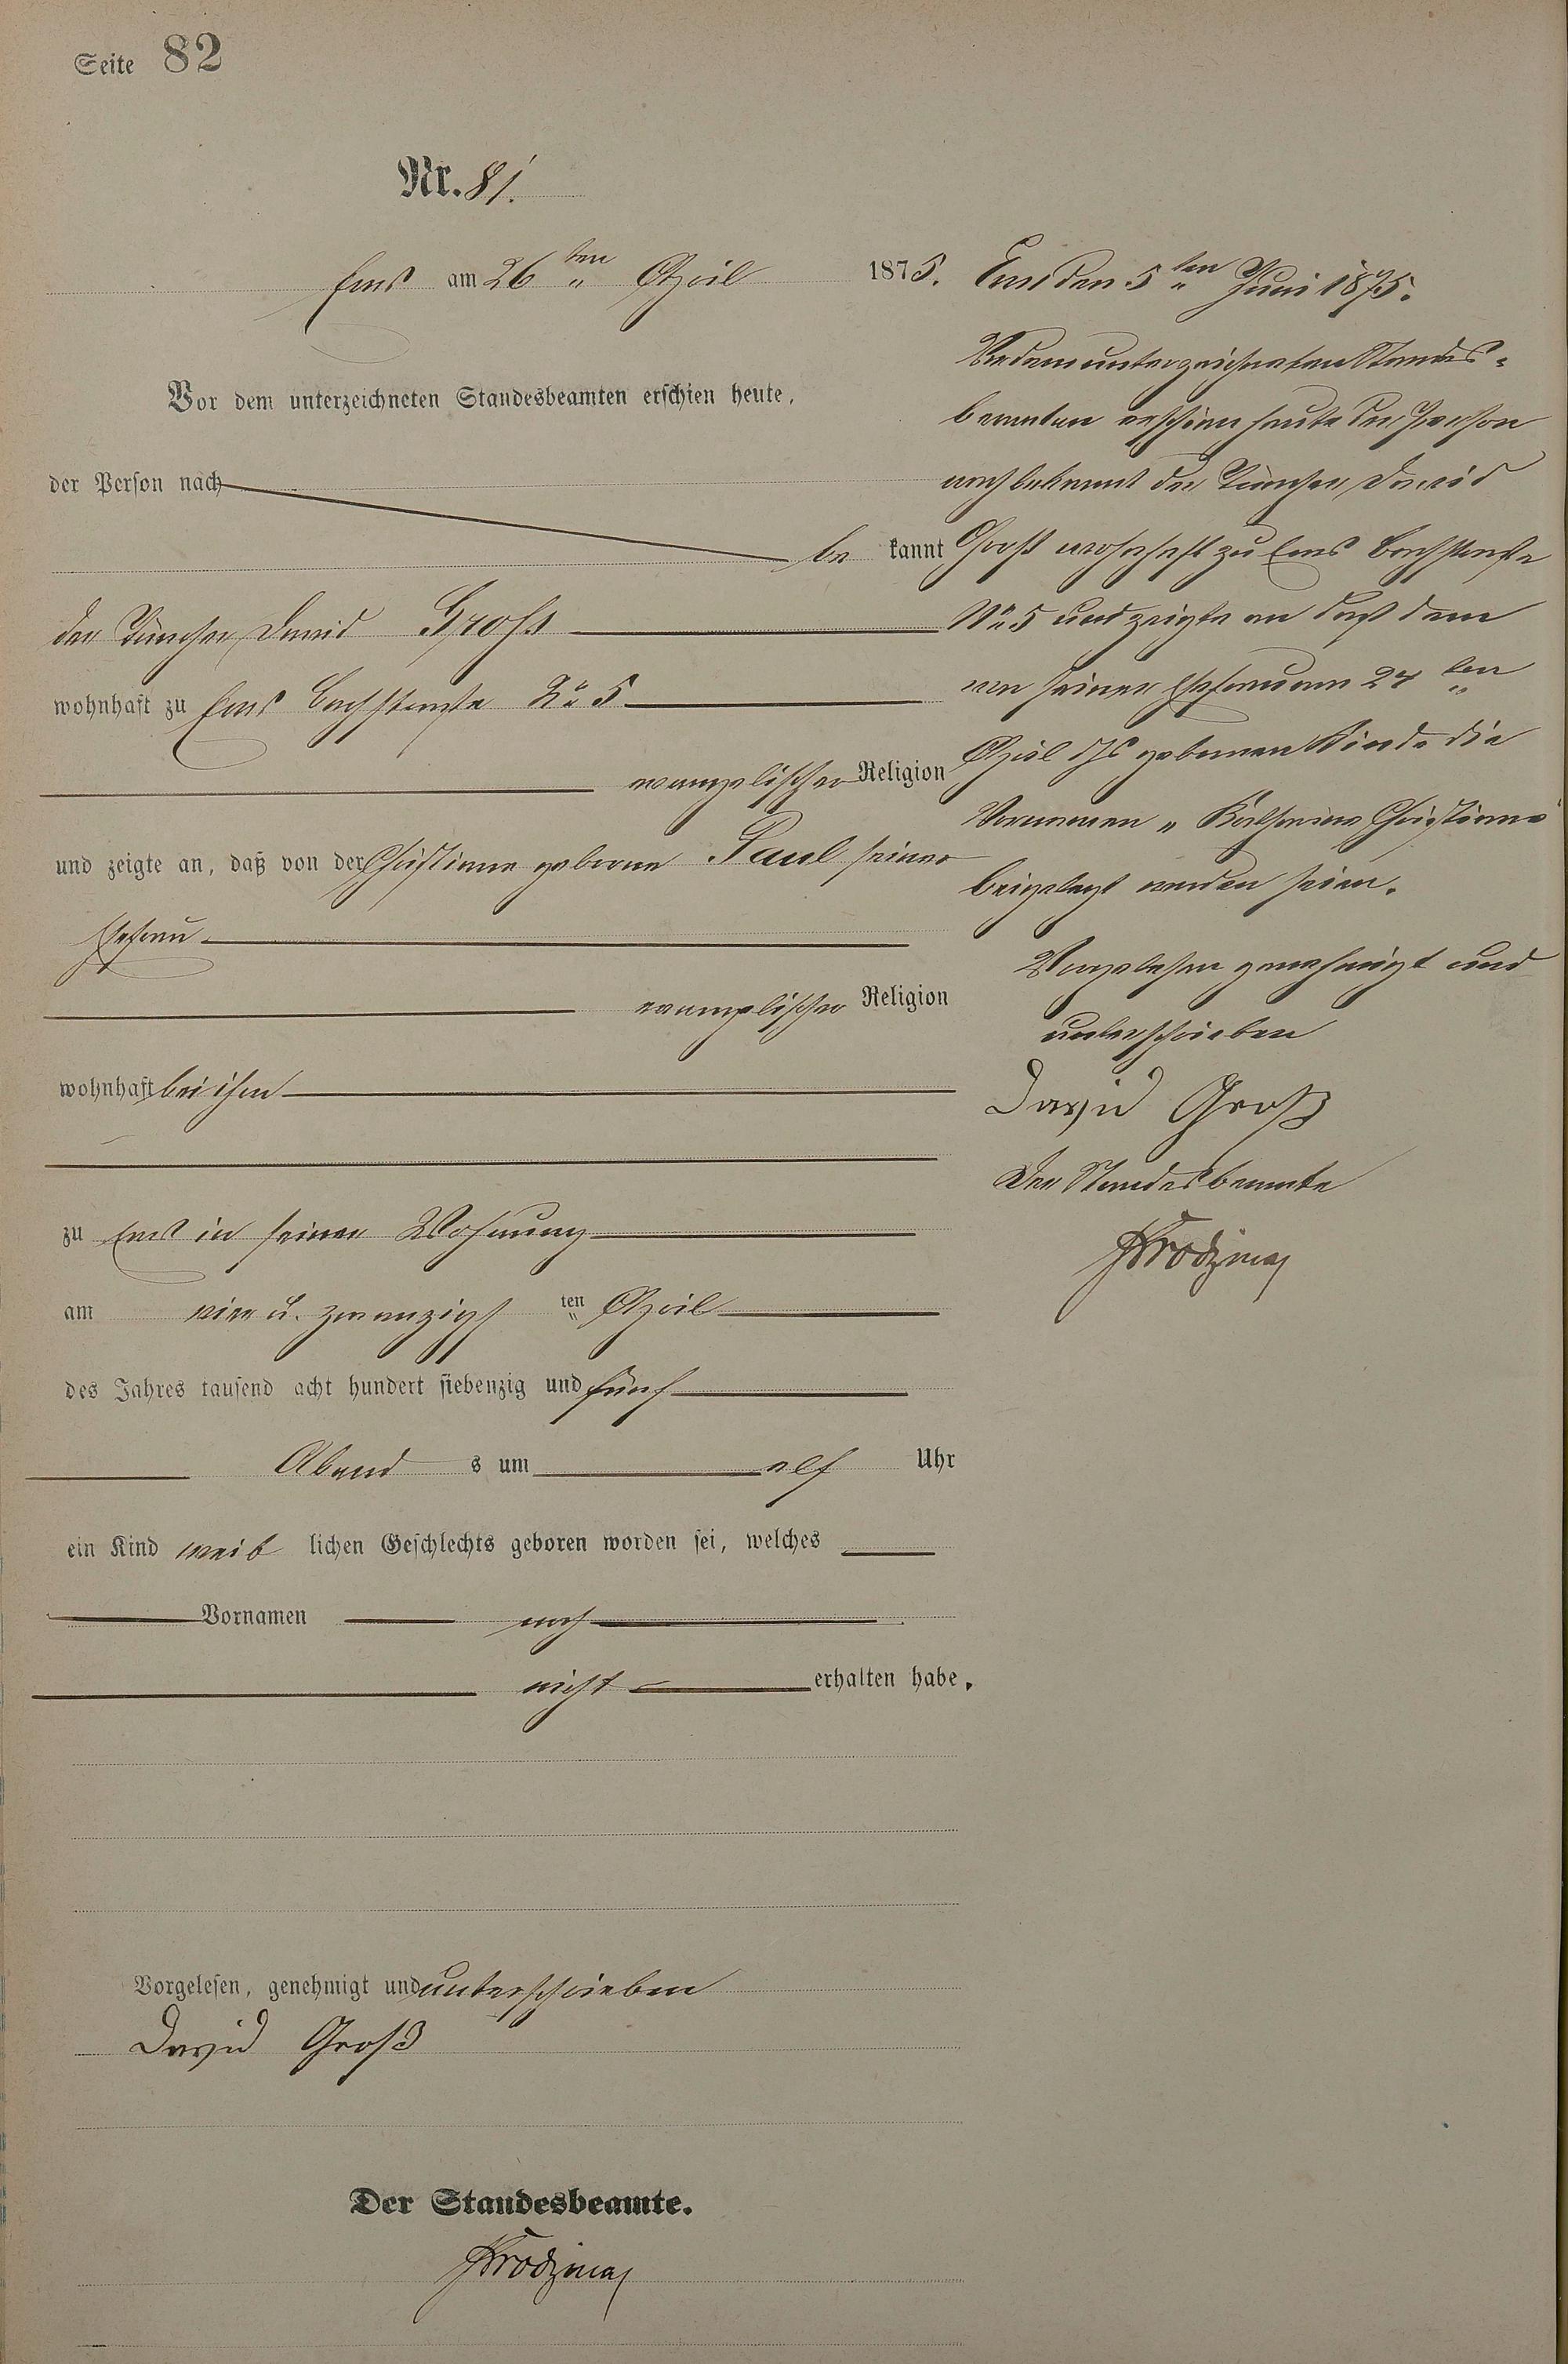 Seite 82
Nr. 81.
Ems am 26 ten April 1875.
Vor dem unterzeichneten Standesbeamten erschien heute,
der Person nach
be kannt
der Tüncher David Gross
wohnhaft zu Ems Bachstraße No 5
evangelischer Religion
und zeigte an, daß von der Christiane geborene Paul seiner
Ehefrau
evangelischer Religion
wohnhaft bei ihm
zu Ems in seiner Wohnung
am vier u. zwanzigst ten April
des Jahres tausend acht hundert siebenzig und fünf
Abend s um elf Uhr
ein Kind weib lichen Geschlechts geboren worden sei, welches
Vornamen noch
nicht erhalten habe.
Vorgelesen, genehmigt und unterschrieben
David Groß
Der Standesbeamte.
Ems den 5 ten Juni 1875.
Vor dem unterzeichneten Standes-
beamten erschien heute der Person
nach bekannt der Tüncher David
Groß wohnhaft zu Ems Bachstraße
No 5 und zeigte an daß dem
von seiner Ehefrau am 24 ten
April d Js geborenen Kinde die
Vornamen „ Katharine Christiane "
beigelegt worden seien.
Vorgelesen genehmigt und
unterschrieben
David Groß
Der Standesbeamte